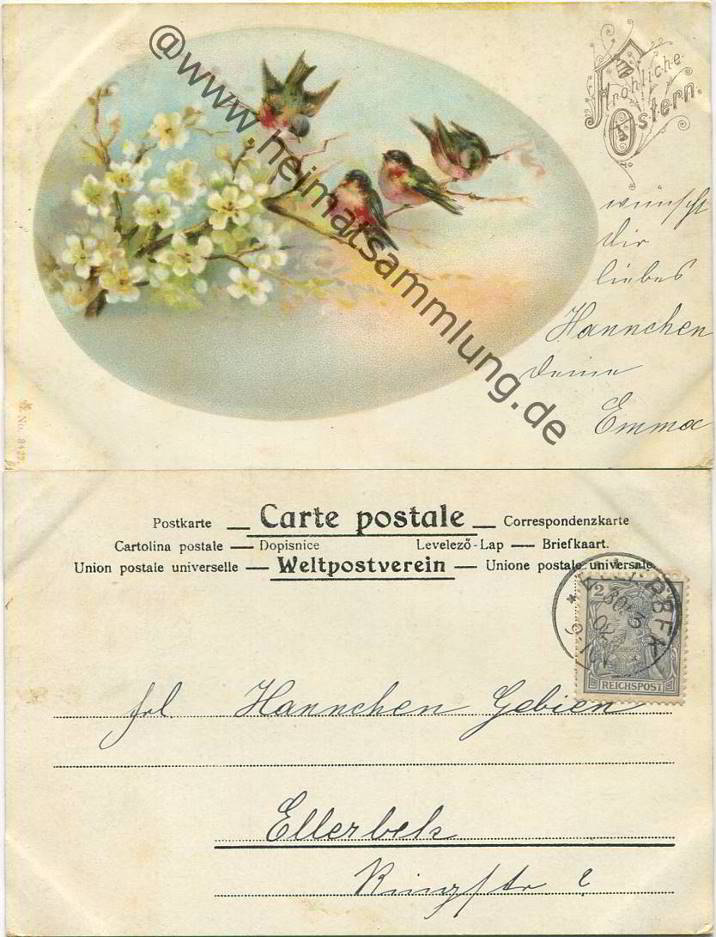 @www.heimatsammlung.de
Fröhliche
Ostern.
wünscht
dir
liebes
Hannchen
deine
Emma
No. 8427
Postkarte — Carte postale — Correspondenzkarte
Cartolina postale — Dopisnice Levelező-Lap — Briefkaart.
Union postale universelle — Weltpostverein — Unione postale universale
REICHSPOST
frl. Hannchen Gebien
Ellerbek
Ringstr. ?